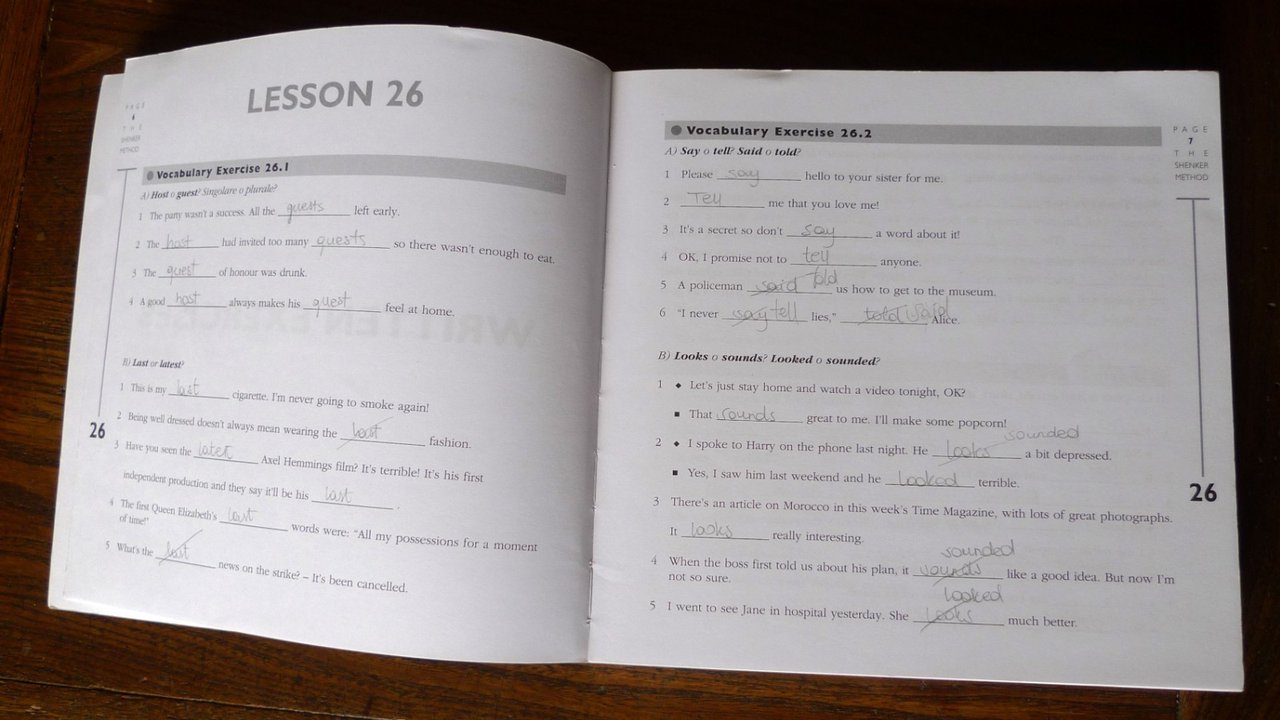 PAGE
6
THE
SHENKER
METHOD
LESSON 26
Vocabulary Exercise 26.1
A) Host o guest? Singolare o plurale?
1 The party wasn't a success. All the guests left early.
2 The host had invited too many guests so there wasn't enough to eat.
3 The guest of honour was drunk.
4 A good host always makes his guest feel at home.
B) Last or latest?
1 This is my last cigarette. I'm never going to smoke again!
2 Being well dressed doesn't always mean wearing the last fashion.
3 Have you seen the Axel Hemmings film? It's terrible! It's his first
independent production and they say it'll be his last.
4 The first Queen Elizabeth's last words were: "All my possessions for a moment
of time!"
5 What's the last news on the strike? – It's been cancelled.
26
PAGE
7
THE
SHENKER
METHOD
Vocabulary Exercise 26.2
A) Say o tell? Said o told?
1 Please say hello to your sister for me.
2 Tell me that you love me!
3 It's a secret so don't say a word about it!
4 OK, I promise not to tell anyone.
5 A policeman said told us how to get to the museum.
6 "I never say tell lies," told said Alice.
B) Looks o sounds? Looked o sounded?
1 ◆ Let's just stay home and watch a video tonight, OK?
■ That sounds great to me. I'll make some popcorn!
sounded
2 ◆ I spoke to Harry on the phone last night. He looks a bit depressed.
■ Yes, I saw him last weekend and he looked terrible.
3 There's an article on Morocco in this week's Time Magazine, with lots of great photographs.
It looks really interesting.
sounded
4 When the boss first told us about his plan, it sounds like a good idea. But now I'm
not so sure.
looked
5 I went to see Jane in hospital yesterday. She looks much better.
26